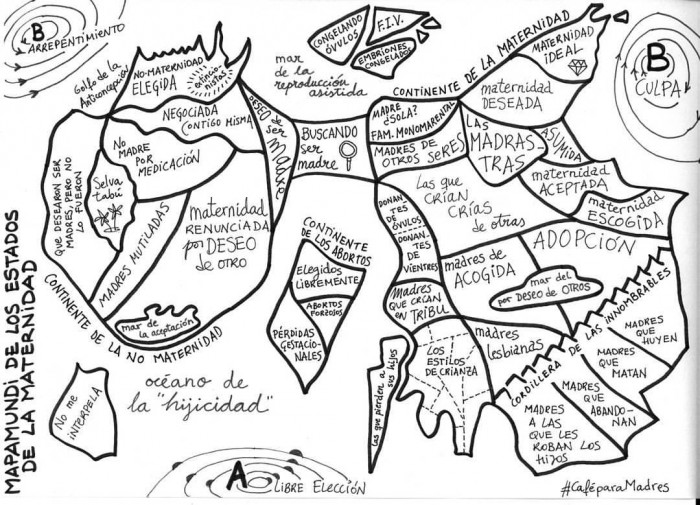 B
ARREPENTIMIENTO
Golfo de la
Anticoncepción
NO-MATERNIDAD
ELEGIDA
extincio-
nistas
NEGOCIADA
CONTIGO MISMA
NO
MADRE
POR
MEDICACIÓN
QUE DESEARON SER
MADRES, PERO NO
LO FUERON
Selva
tabú
MADRES MUTILADAS
maternidad
RENUNCIADA
por DESEO
de OTRO
mar de
la aceptación
CONTINENTE DE LA NO MATERNIDAD
DESEO de ser MADRE
BUSCANDO
ser
madre
CONGELANDO
ÓVULOS
F.I.V.
EMBRIONES
CONGELADOS
mar
de la
reproducción
asistida
CONTINENTE DE LA MATERNIDAD
MATERNIDAD
IDEAL
B
CULPA
maternidad
DESEADA
MADRE
¿SOLA?
FAM. MONOMARENTAL
MADRES DE
OTROS SERES
LAS
MADRAS-
TRAS
ASUMIDA
maternidad
ACEPTADA
maternidad
ESCOGIDA
Las que
CRÍAN
CRÍAS
de otras
DONAN-
TES DE
ÓVULOS
DONAN-
TES DE
VIENTRES
madres de
ACOGIDA
ADOPCIÓN
mar del
por DESEO de OTROS
Madres
QUE CRÍAN
EN TRIBU
madres
lesbianas
LOS
ESTILOS
DE CRIANZA
Las que pierden a
sus hijos
CORDILLERA DE LAS INNOMBRABLES
MADRES
QUE
HUYEN
MADRES
QUE
MATAN
MADRES
QUE
ABANDO-
NAN
MADRES
A LAS
QUE LES
ROBAN LOS
HIJOS
CONTINENTE
DE LOS ABORTOS
Elegidos
LIBREMENTE
ABORTOS
FORZOSOS
PÉRDIDAS
GESTACIO-
NALES
No me
INTERPELA
océano de
la "hijicidad"
A
LIBRE ELECCIÓN
MAPAMUNDI DE LOS ESTADOS
DE LA MATERNIDAD
#CaféparaMadres